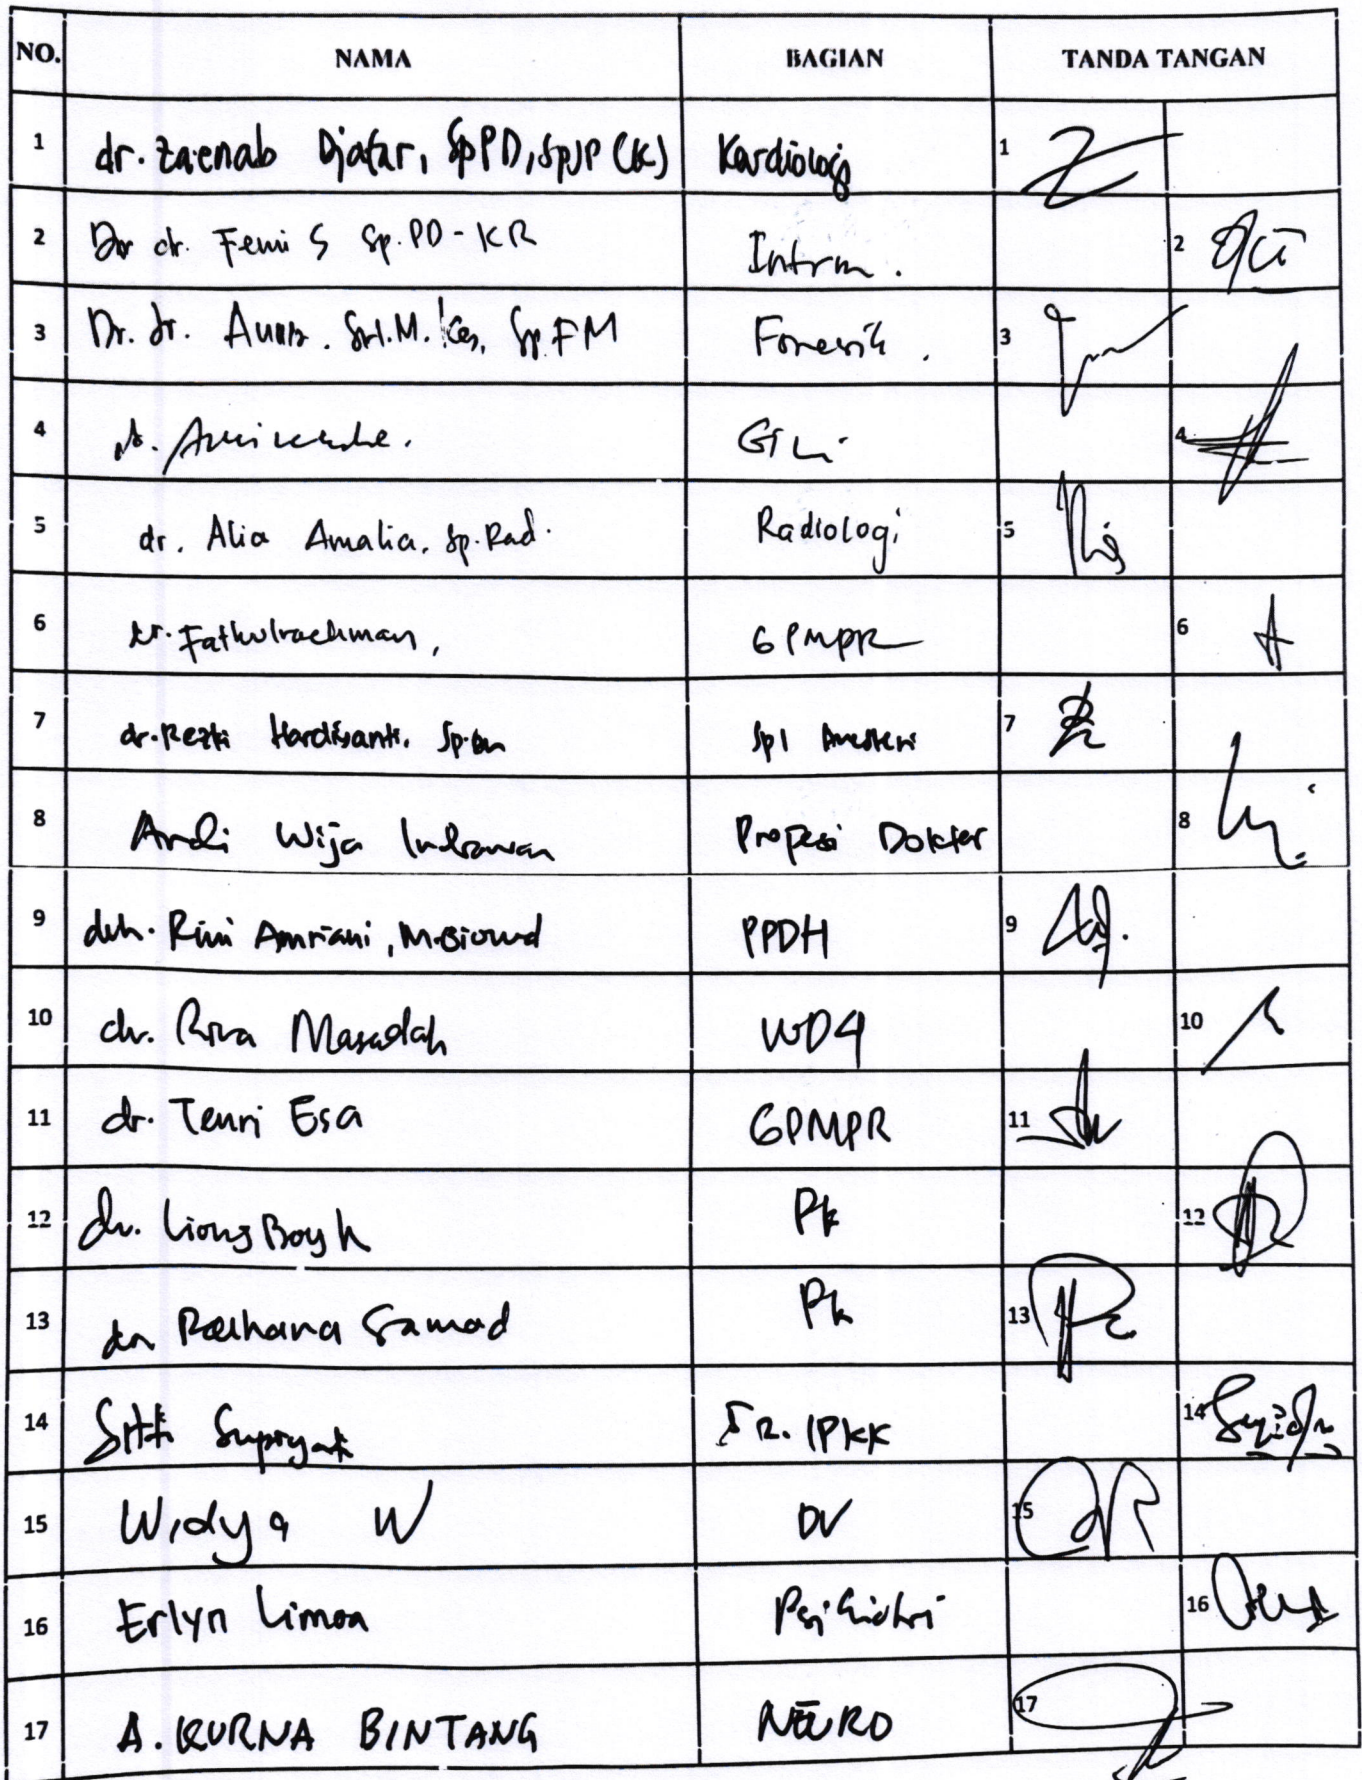 NO. NAMA BAGIAN TANDA TANGAN
1 dr. Zaenab Djafar, SpPD, SpJP (K) Kardiologi 1
2 dr. Femi S Sp.PD-KR Intern. 2
3 Dr. dr. M.Kes, Sp.FM Forensik. 3
4 dr. Gizi 4
5 dr. Alia Amalia, Sp.Rad. Radiologi 5
6 dr. Fathulrachman, GPMPR 6
7 dr. Rezki Hardisanti, Sp1 Anestesi 7
8 Andi Wija Indrawan Propesi Dokter 8
9 Rini Amriani, M.Biomed PPDH 9
10 dr. Rina Masadah WD4 10
11 dr. Tenri Esa GPMPR 11
12 dr. Liong Boy K Pk 12
13 dr. Raehana Samad Pk 13
14 IPKK 14
15 Widya W DV 15
16 Erlyn Limoa Psikiatri 16
17 A. KURNA BINTANG NEURO 17